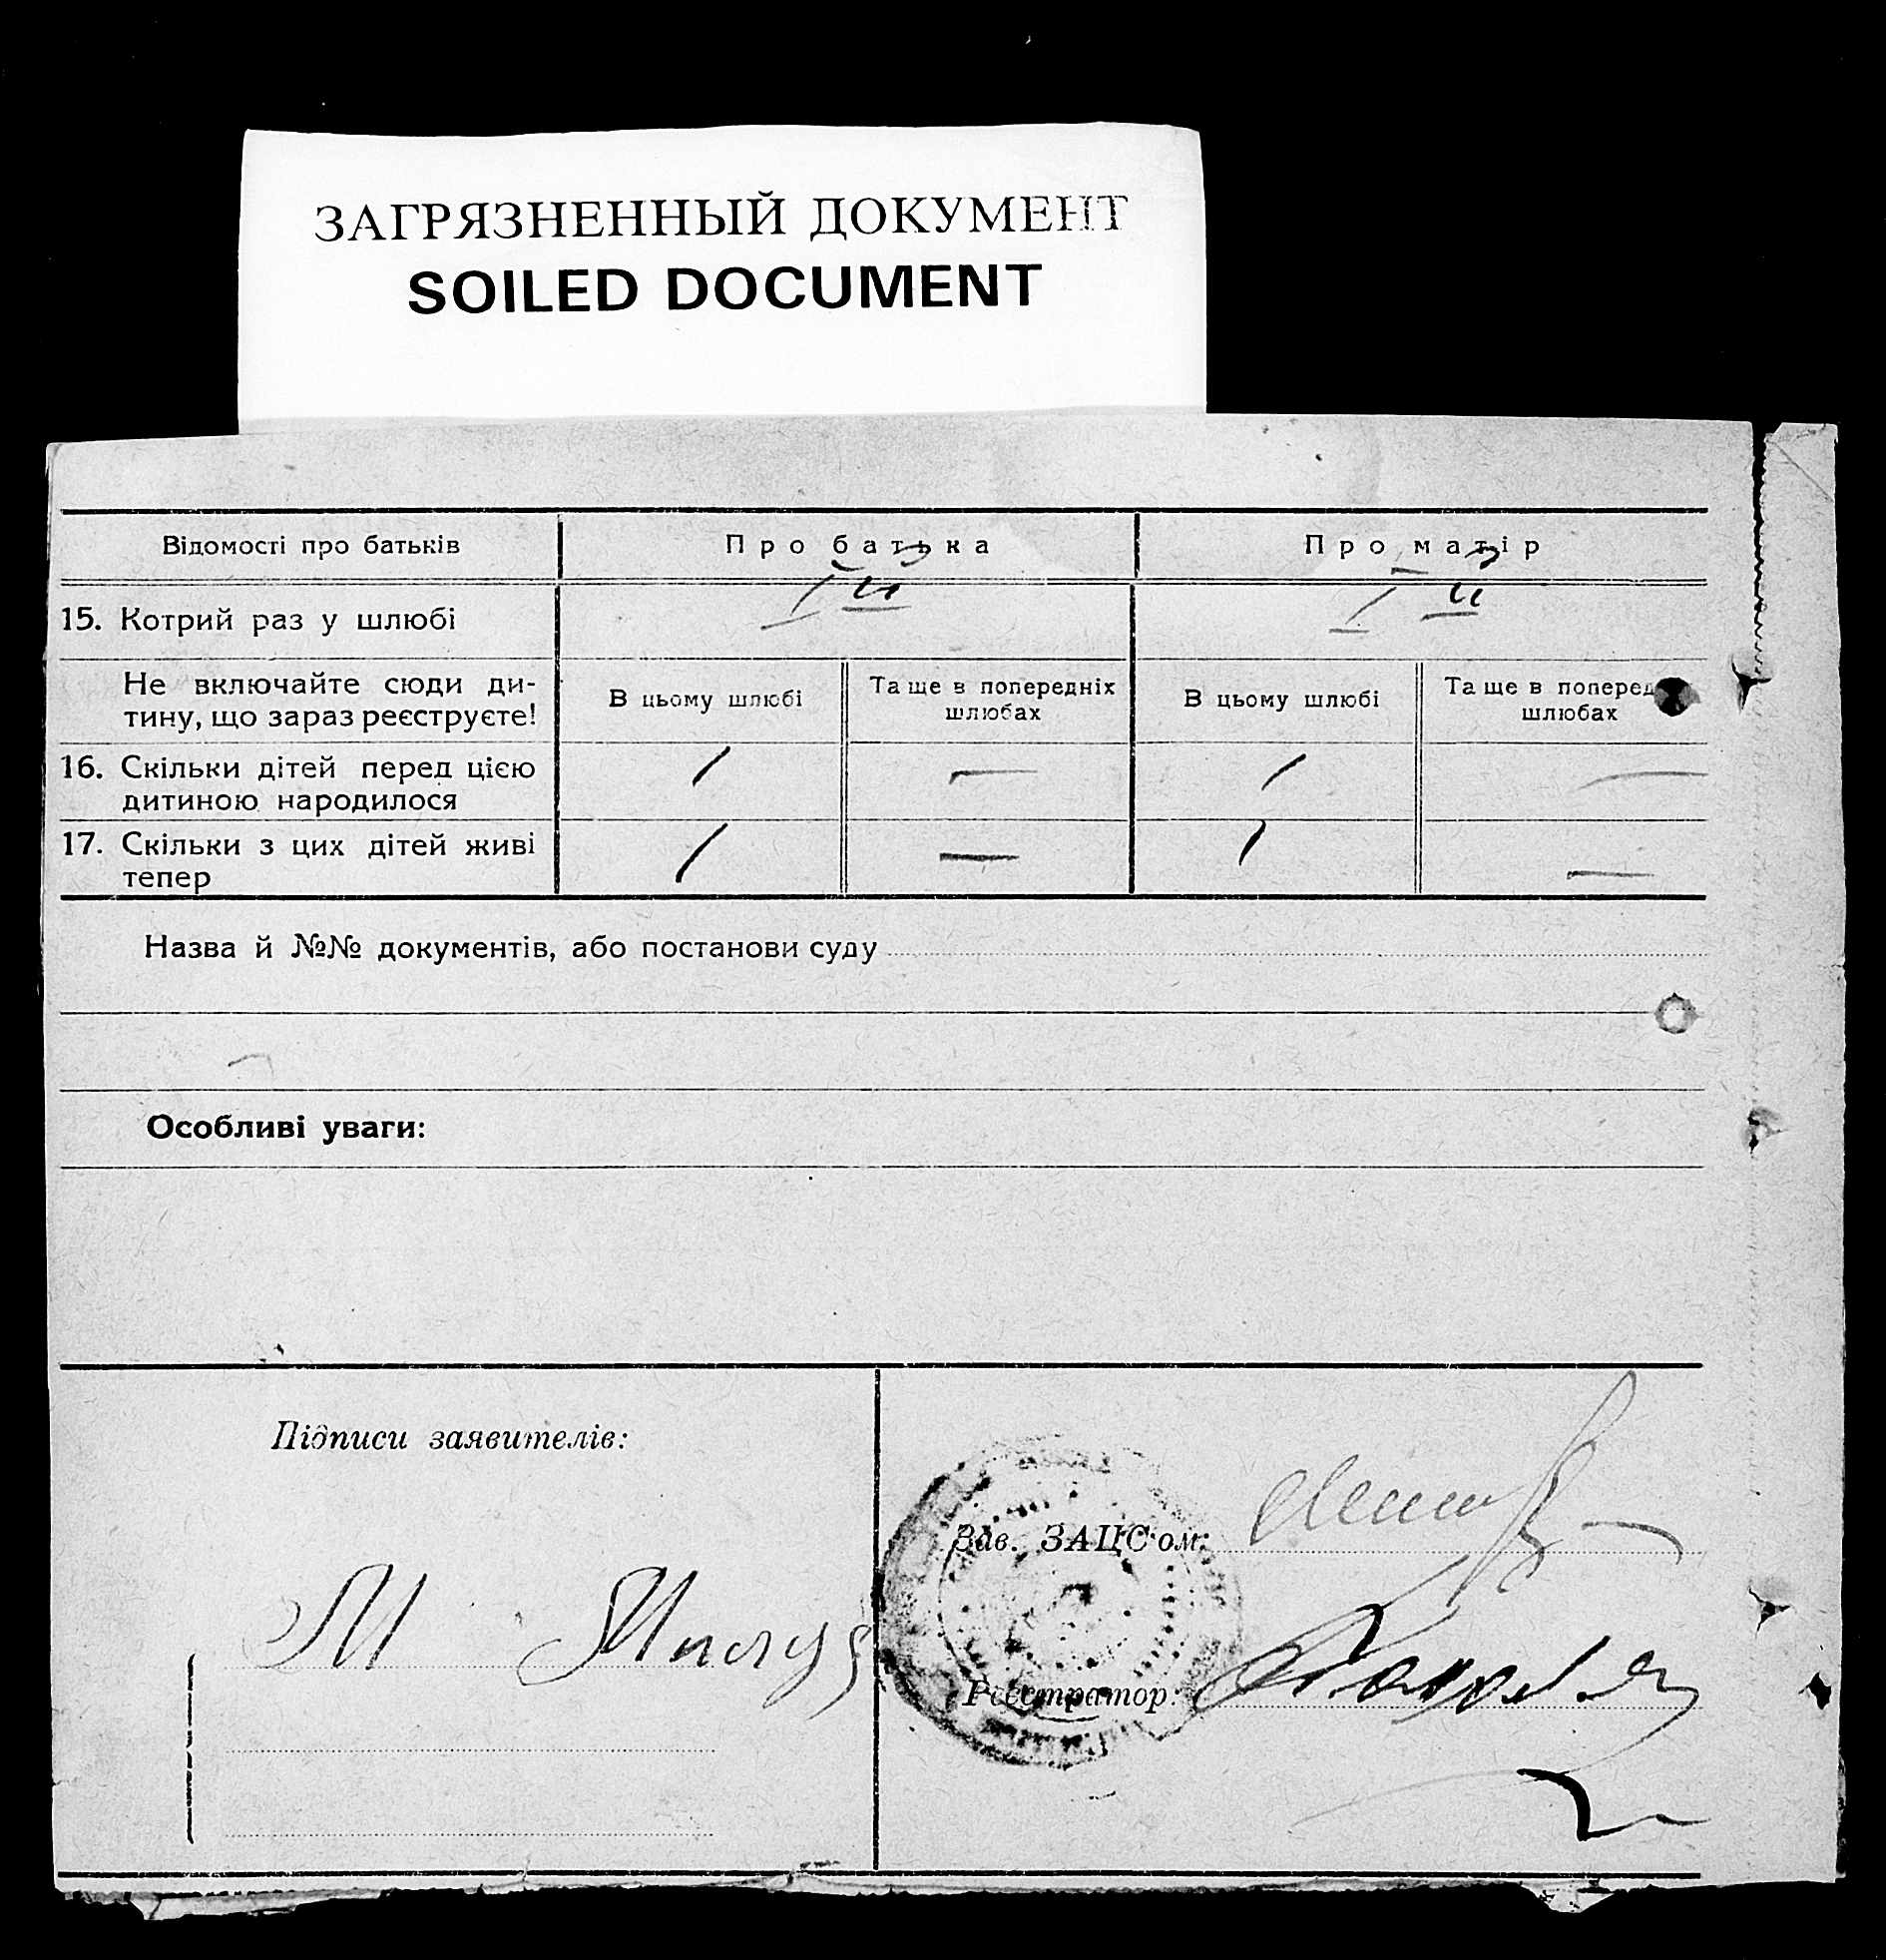 ЗАГРЯЗНЕННЫЙ ДОКУМЕНТ
SOILED DOCUMENT
Відомості про батьків
Про батька
Про матір
15. Котрий раз у шлюбі
I й
I й
Не включайте сюди ди-
тину, що зараз реєструєте!
В цьому шлюбі
Та ще в попередніх
шлюбах
В цьому шлюбі
Та ще в поперед
шлюбах
16. Скільки дітей перед цією
дитиною народилося
1
—
1
—
17. Скільки з цих дітей живі
тепер
1
—
1
—
Назва й №№ документів, або постанови суду
Особливі уваги:
Підписи заявителів:
М
Зав. ЗАЦС'ом:
Реєстратор: